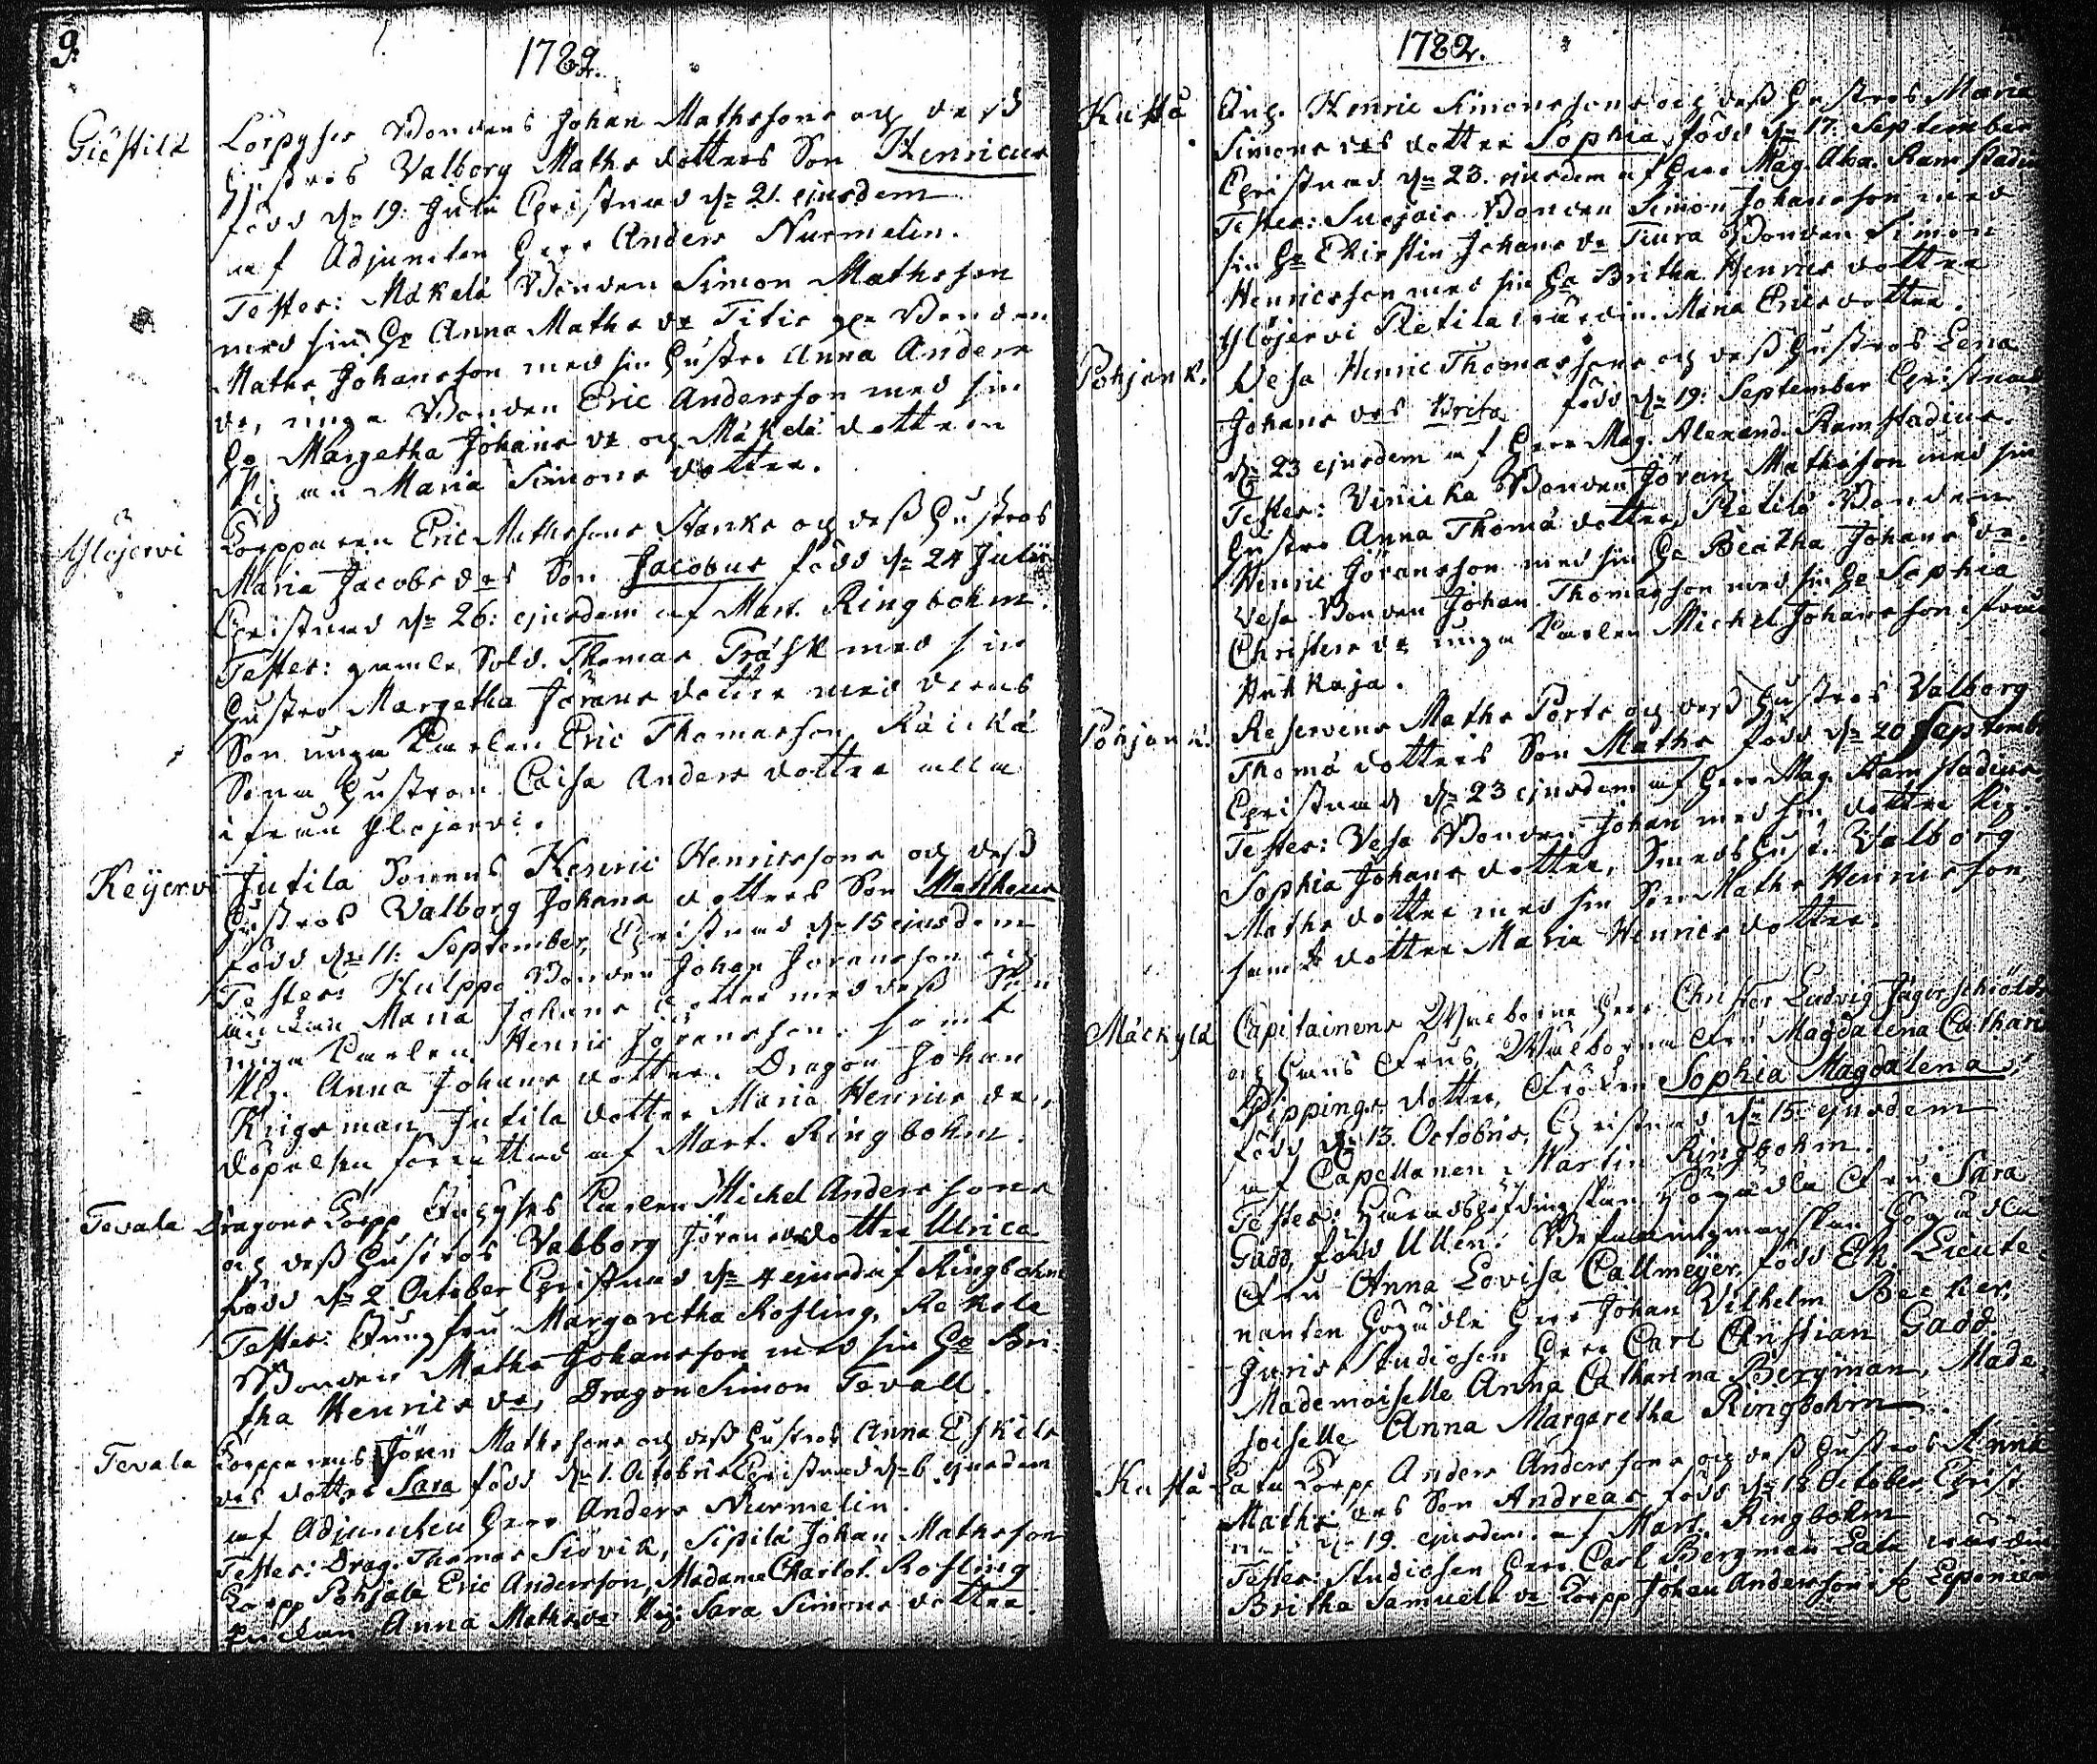 9.
1782.
Giöstilä Lörpyhs Bondens Johan Mathssons och dess
Hustros Valborg Maths dotters Son Henricus
född dn 19. Julii Christnad dn 21. ejusdem
af Adjuncten Herr Anders Nurmelin.
Testes: Mäkelä Bonden Simon Mathsson
med sin Ho Anna Maths dr Bonden
Maths Johansson med sin Hustro Anna Anders
dr, unga Bonden Eric Andersson med sin
Ho Margetha Johans dr och Mäkelä dottren
Pig. Maria Simons dotter.
Ylöjervi Torpparen Eric Mathssons Stanks och dess Hustros
Maria Jacobs drs Son Jacobus född dn 24 Julii
Christnad dn 26: ejusdem af Mart. Ringbohm.
Testes: gamle Sold. Thomas Träsk med sin
Hustro Margetha Jörans dotter med deras
Son unga Karlen Eric Thomasson, Räickä
Sona Hustron Caisa Anders dotter alla
ifrån Ylöjervi.
Keÿervi Jutila Sonens Henric Henricssons och dess
Hustros Valborg Johans dotters Son Mattheus
född dn 11. September, Christnad dn 15 ejusdem
Testes: Hulppo Bonden Johan Joransson och
Maria Johans dotter med dess Son
unga Karlen Henric Jöransson. samt
Pig. Anna Johans dotter. Dragon Johan
Krigsman, Jutila dotter Maria Henrics dr,
döpelsen förrättad af Mart. Ringbohm.
Tevala Dragons Torpp Inhyses Karlen Michel Anderssons
och dess Hustros Valborg Jörans dotter Ulrica
född dn 2 October Christnad dn 4 ejusd. af Ringbohm
Testes: Jungfru Margaretha Rosling, Rekola
Bonden Maths Johansson med sin Ho Bri-
tha Henrics dr, Dragon Simon Tevall.
Tevala Torpparens Jören Mathssons och dess Hustros Anna Eskils
drs dotter Sara född dn 1. Octobris Christnad dn 6 ejusdem
af Adjuncten Herr Anders Nurmelin.
Testes: Drag. Thomas Siövik, Sipilä Johan Mathsson
Torpp Pohjala Eric Andersson, Madame Charlot. Rosling
Enckan Anna Maths dr Pig: Sara Simons dotter.
1782.
Kuttå Inh. Henric Simonssons och dess Hustros Maria
Simons drs dotter Sophia född dn 17. September
Christnad dn 23. ejusdem af Herr Mag. Alex. Ramstadius
Testes: Bonden Simon Johansson med
sin Ho Christin Johans dr Tiura Bonden Simon
Henricsson med sin Ho Britha Henrics dotter
Ylöjervi Pietilä värdin. Maria Erics dotter.
Pohjank. Vesa Henric Thomassons och dess Hustros Lena
Johans drs Brita född dn 19: September Christnad
dn 23 ejusdem af Herr Mag. Alexand. Ramstadius.
Testes: Vinicka Bonden Jöran Mathsson med sin
Hustro Anna Thomä dotter, Pietilä Bonden
Henric Jöransson med sin Ho Beatha Johans dr.
Vesa Bonden Johan Thomasson med sin Ho Sophia
Christers dr unga Karlen Michel Johansson ifrån
Hukkaja.
Pohjank. Reservens Maths Ports och dess Hustros Valborg
Thomä dotters Son Maths född dn 20 September
Christnad dn 23 ejusdem af Herr Mag. Ramstadius
Testes: Vesa Bonden Johan med sin dotter Pig.
Sophia Johans dotter, Smeds Hust. Valborg
Maths dotter med sin Son Maths Henricsson
samt dotter Maria Henrics dotter.
Mäckylä Capitainens Wälborne Herr Christer Ludvig Jägerschiölds
och Hans Frus, Wälborna Fru Magdalena Catharina
Pippings dotter, Fröken Sophia Magdalena,
född dn 13. Octobris, Christnad dn 15. ejusdem
af Capellanen: Martin Ringbohm.
Testes: Häradshöfdingskan Högädla Fru Sara
Gadd, född Ullen: Befallningsmanskan Högädla
Fru Anna Lovisa Callmeÿer, född Ek. Lieute-
nanten Högädle Herr Johan Vilhelm Becker,
Juris Studiosen Herr Carl Christian Gadd.
Mademoiselle Anna Catharina Bergman, Made-
joiselle Anna Margaretha Ringbohm.
Kuttå Lata Torpp Anders Anderssons och dess Hustros Anna
Maths drs Son Andreas född dn 18 October Christ-
nad dn 19. ejusdem. af Mart. Ringbohm
Testes: Studiosen Herr Carl Bergman Lata värdin
Britha Samuels dr Torpp Johan Andersson